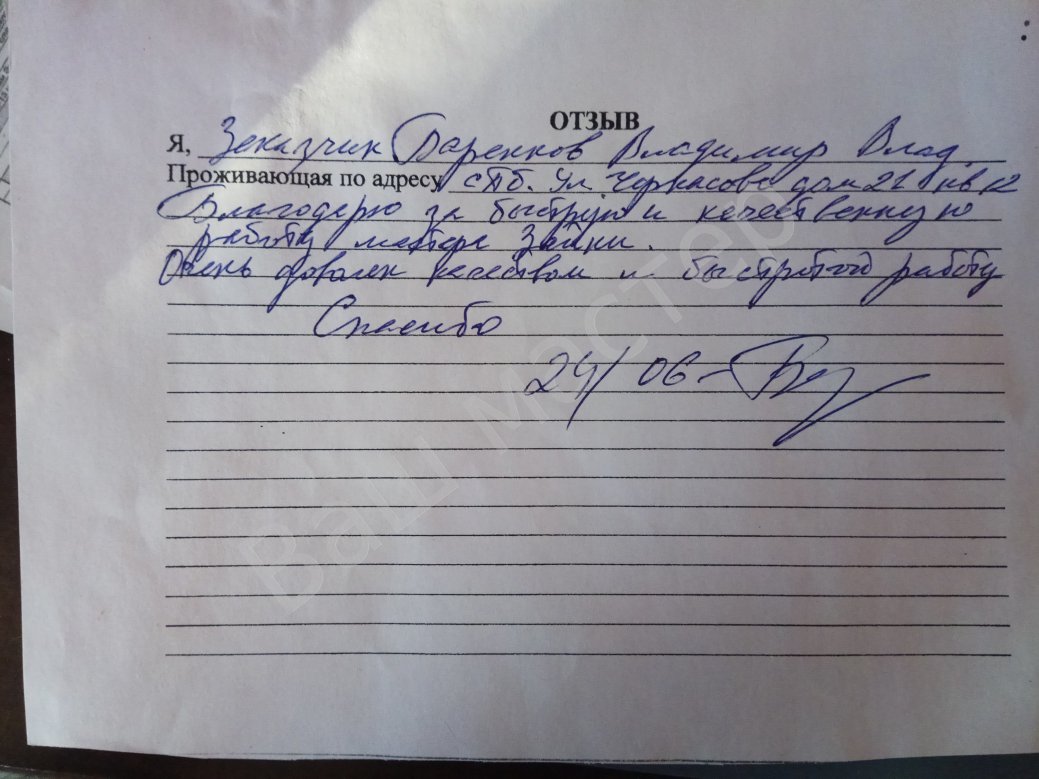 ОТЗЫВ
Я, Заказчик Баренков Владимир Влад.
Проживающая по адресу СПб. ул. Черкасова дом 21 кв 12
Благодарю за быструю и качественную
работу мастера Заики.
Очень доволен качеством и быстротой работу
Спасибо
24/06-
Ваш мастер